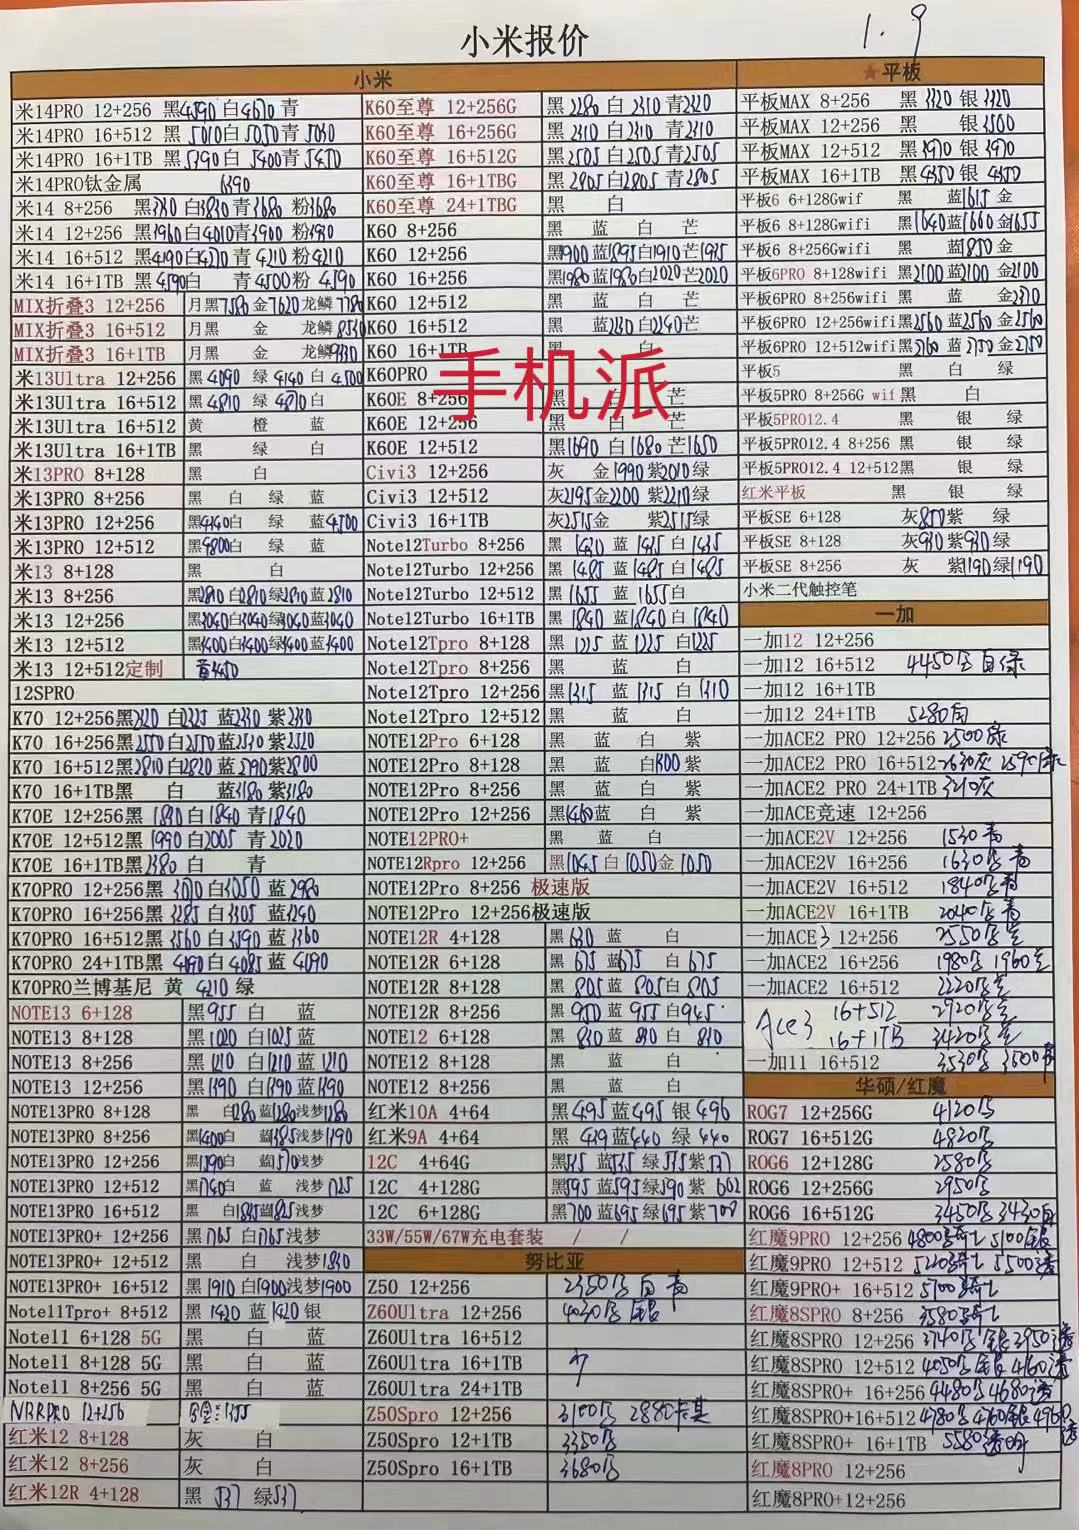 小米报价
1.9
小米
米14PRO 12+256 黑4590 白4670 青
米14PRO 16+512 黑5010 白5050 青5030
米14PRO 16+1TB 黑5390 白5400 青5450
米14PRO钛金属
米14 8+256 黑 白3830 青3680 粉3680
米14 12+256 黑3960 白4010 青3900 粉3930
米14 16+512 黑4190 白4270 青4210 粉4210
米14 16+1TB 黑4590 白 青4500 粉4590
MIX折叠3 12+256 月黑7580 金7620 龙鳞7780
MIX折叠3 16+512 月黑 金 龙鳞8530
MIX折叠3 16+1TB 月黑 金 龙鳞9330
米13Ultra 12+256 黑4090 绿4140 白4500
米13Ultra 16+512 黑4810 绿4870 白
米13Ultra 16+512 黄 橙 蓝
米13Ultra 16+1TB 黑 绿 白
米13PRO 8+128 黑 白
米13PRO 8+256 黑 白 绿 蓝
米13PRO 12+256 黑4140 白 绿 蓝4500
米13PRO 12+512 黑4800 白 绿 蓝
米13 8+128 黑 白
米13 8+256 黑2810 白2810 绿2810 蓝2810
米13 12+256 黑3040 白3040 绿3040 蓝3040
米13 12+512 黑3400 白3400 绿3400 蓝3400
米13 12+512定制 黄3450
12SPRO
K70 12+256黑2320 白2325 蓝2330 紫2330
K70 16+256黑2550 白2550 蓝2530 紫2520
K70 16+512黑2810 白2820 蓝2790 紫2800
K70 16+1TB黑 白 蓝3180 紫3180
K70E 12+256黑 1830 白1840 青1840
K70E 12+512黑 1990 白2005 青2020
K70E 16+1TB黑2380 白 青
K70PRO 12+256黑 3070 白3050 蓝2980
K70PRO 16+256黑 3285 白3305 蓝3290
K70PRO 16+512黑3560 白3590 蓝3560
K70PRO 24+1TB黑 4190 白4085 蓝4090
K70PRO兰博基尼 黄 4210 绿
NOTE13 6+128 黑955 白 蓝
NOTE13 8+128 黑1020 白1025 蓝
NOTE13 8+256 黑1210 白1210 蓝1210
NOTE13 12+256 黑1390 白1390 蓝1390
NOTE13PRO 8+128 黑 白1280 蓝1280 浅梦1280
NOTE13PRO 8+256 黑1400 白 蓝1385 浅梦1390
NOTE13PRO 12+256 黑1590 白 蓝1570 浅梦
NOTE13PRO 12+512 黑1740 白 蓝 浅梦1725
NOTE13PRO 16+512 黑 白1845 蓝1825 浅梦
NOTE13PRO+ 12+256 黑1765 白1765 浅梦
NOTE13PRO+ 12+512 黑 白 浅梦1830
NOTE13PRO+ 16+512 黑1910 白1900 浅梦1900
Note11Tpro+ 8+512 黑1420 蓝1420 银
Note11 6+128 5G 黑 白 蓝
Note11 8+128 5G 黑 白 蓝
Note11 8+256 5G 黑 白 蓝
12+256
红米12 8+128 灰 白
红米12 8+256 灰 白
红米12R 4+128 黑 537 绿537
K60至尊 12+256G 黑2280 白2310 青2320
K60至尊 16+256G 黑2310 白2310 青2310
K60至尊 16+512G 黑2505 白2505 青2505
K60至尊 16+1TBG 黑2805 白2805 青2805
K60至尊 24+1TBG 黑 白
K60 8+256 黑 蓝 白 芒
K60 12+256 黑1900 蓝1895 白1910 芒1925
K60 16+256 黑1980 蓝1980 白2020 芒2020
K60 12+512 黑 蓝 白 芒
K60 16+512 黑 蓝2230 白2240 芒
K60 16+1TB 黑 白
手机派
K60PRO
K60E 8+256 黑 白 芒
K60E 12+256 黑 白 芒
K60E 12+512 黑1690 白1680 芒1650
Civi3 12+256 灰 金1990 紫2010 绿
Civi3 12+512 灰2195 金2200 紫2210 绿
Civi3 16+1TB 灰2515 金 紫2515 绿
Note12Turbo 8+256 黑 1430 蓝 1435 白 1435
Note12Turbo 12+256 黑 1485 蓝 1485 白 1485
Note12Turbo 12+512 黑 1655 蓝 1655 白
Note12Turbo 16+1TB 黑 1840 蓝1840 白 1840
Note12Tpro 8+128 黑 1225 蓝 1225 白1225
Note12Tpro 8+256 黑 蓝 白
Note12Tpro 12+256 黑1315 蓝 1315 白 1310
Note12Tpro 12+512 黑 蓝 白
NOTE12Pro 6+128 黑 蓝 白 紫
NOTE12Pro 8+128 黑 蓝 白1300 紫
NOTE12Pro 8+256 黑 蓝 白 紫
NOTE12Pro 12+256 黑1460 蓝 白 紫
NOTE12PRO+ 黑 蓝 白
NOTE12Rpro 12+256 黑1045 白1050 金1050
NOTE12Pro 8+256 极速版
NOTE12Pro 12+256极速版
NOTE12R 4+128 黑630 蓝 白
NOTE12R 6+128 黑 675 蓝675 白 675
NOTE12R 8+128 黑 805 蓝 805 白 805
NOTE12R 8+256 黑 950 蓝 955 白945
NOTE12 6+128 黑 830 蓝 830 白 830
NOTE12 8+128 黑 蓝 白
NOTE12 8+256 黑 蓝 白
红米10A 4+64 黑495 蓝495 银 496
红米9A 4+64 黑 439 蓝440 绿 440
12C 4+64G 黑535 蓝535 绿535 紫537
12C 4+128G 黑595 蓝595 绿590 紫 602
12C 6+128G 黑700 蓝695 绿695 紫708
33W/55W/67W充电套装 / /
努比亚
Z50 12+256 2350 白 青
Z60Ultra 12+256 4030 银
Z60Ultra 16+512
Z60Ultra 16+1TB
Z60Ultra 24+1TB
Z50Spro 12+256 3100 2880
Z50Spro 12+1TB 3350
Z50Spro 16+1TB 3680
★平板
平板MAX 8+256 黑 3320 银 3320
平板MAX 12+256 黑 银3500
平板MAX 12+512 黑3970 银3970
平板MAX 16+1TB 黑4350 银 4350
平板6 6+128Gwif 黑 蓝1615 金
平板6 8+128Gwifi 黑1640 蓝1660 金1655
平板6 8+256Gwifi 黑 蓝1850 金
平板6PRO 8+128wifi 黑2100 蓝2100 金2100
平板6PRO 8+256wifi 黑 蓝 金2370
平板6PRO 12+256wifi黑2560 蓝2560 金2560
平板6PRO 12+512wifi黑2760 蓝2750 金2750
平板5 黑 白 绿
平板5PRO 8+256G wif 黑 白
平板5PRO12.4 黑 银 绿
平板5PRO12.4 8+256 黑 银 绿
平板5PRO12.4 12+512黑 银 绿
红米平板 黑 银 绿
平板SE 6+128 灰850 紫 绿
平板SE 8+128 灰930 紫930 绿
平板SE 8+256 灰 紫1190 绿1190
小米二代触控笔
一加
一加12 12+256
一加12 16+512 4450 白绿
一加12 16+1TB
一加12 24+1TB 5280
一加ACE2 PRO 12+256 2500
一加ACE2 PRO 16+512 2630灰
一加ACE2 PRO 24+1TB 3210灰
一加ACE竞速 12+256
一加ACE2V 12+256 1530青
一加ACE2V 16+256 1630 青
一加ACE2V 16+512 1840 青
一加ACE2V 16+1TB 2040 青
一加ACE3 12+256 2550
一加ACE2 16+256 1980 1960
一加ACE2 16+512 2220
Ace3 16+512 2920
16+1TB 3420
一加11 16+512 3530 3500
华硕/红魔
ROG7 12+256G 4120
ROG7 16+512G 4820
ROG6 12+128G 2580
ROG6 12+256G 2950
ROG6 16+512G 3450 3430白
红魔9PRO 12+256 4800 5100银
红魔9PRO 12+512 5220 5500透
红魔9PRO+ 16+512 5700
红魔8SPRO 8+256 3580
红魔8SPRO 12+256 3740 银3950透
红魔8SPRO 12+512 4050 银 4160透
红魔8SPRO+ 16+256 4480 4680透
红魔8SPRO+16+512 4780 4760银 4960透
红魔8SPRO+ 16+1TB 5580透明
红魔8PRO 12+256
红魔8PRO+12+256